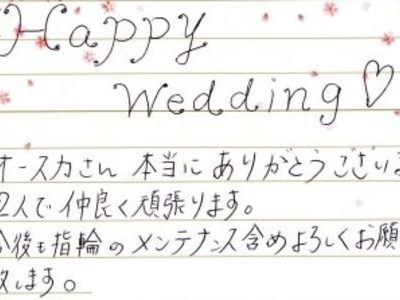 Happy
Wedding ♡
オースカさん 本当に ありがとうござい
2人で仲良く頑張ります。
今後も指輪のメンテナンス含めよろしくお願
致します。